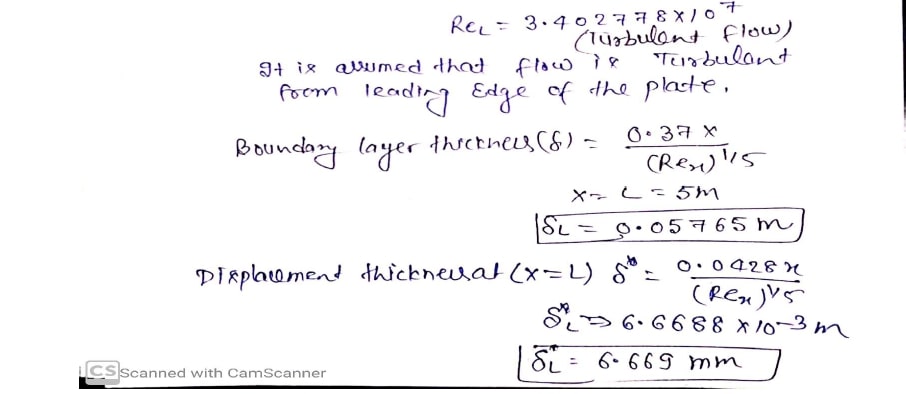 ReL = 3.402778 x 10^7
(Turbulent flow)
It is assumed that flow is Turbulent
from leading Edge of the plate.
Boundary layer thickness (δ) = 0.37 x / (Rex)^1/5
x = L = 5m
δL = 0.05765 m
Displacement thickness at (x = L) δ* = 0.0428x / (Rex)^1/5
δ*L ⇒ 6.6688 x 10^-3 m
δ*L = 6.669 mm
CS Scanned with CamScanner